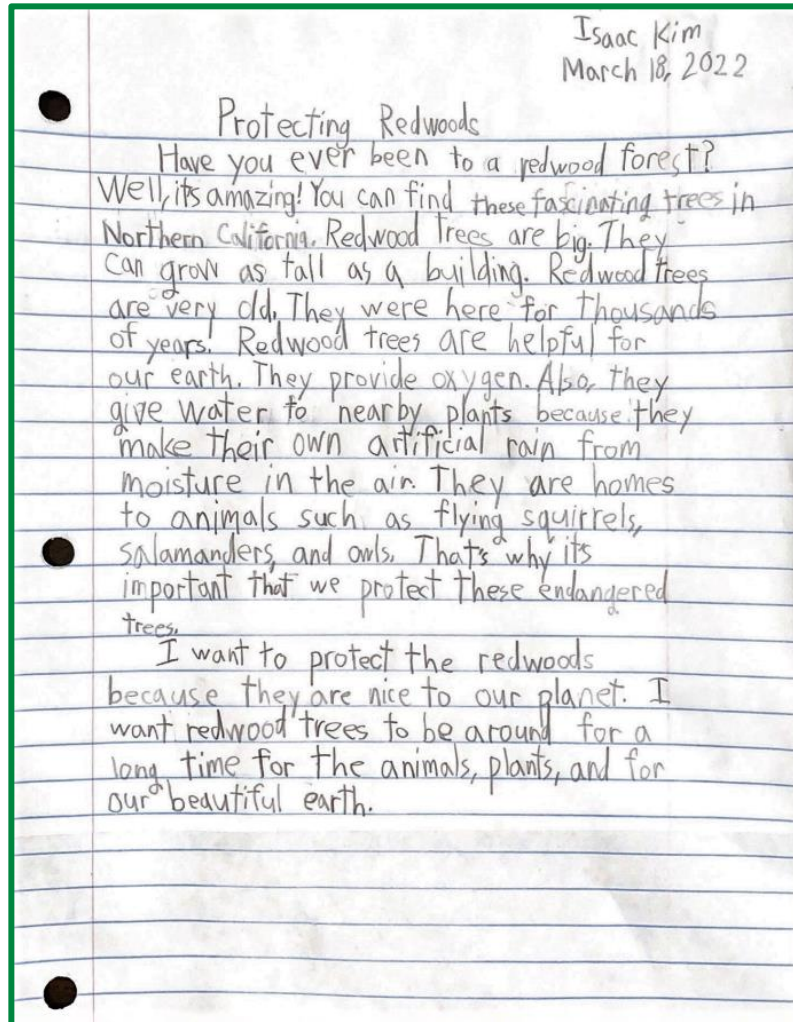 Isaac Kim
March 18, 2022
Protecting Redwoods
Have you ever been to a redwood forest?
Well, its amazing! You can find these fascinating trees in
Northern California. Redwood Trees are big. They
can grow as tall as a building. Redwood trees
are very old. They were here for thousands
of years! Redwood trees are helpful for
our earth. They provide oxygen. Also, they
give water to nearby plants because they
make their own artificial rain from
moisture in the air. They are homes
to animals such as flying squirrels,
salamanders, and owls. That's why it's
important that we protect these endangered
trees.
I want to protect the redwoods
because they are nice to our planet. I
want redwood trees to be around for a
long time for the animals, plants, and for
our beautiful earth.